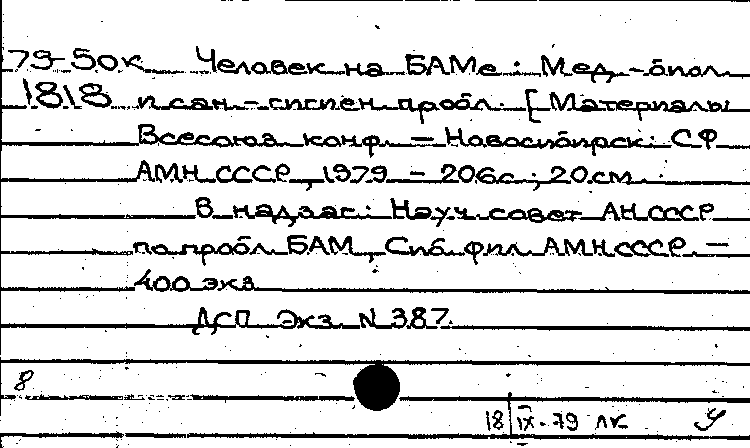 79-50к Человек на БАМе : Мед.-биол.
1818 и сан.-гигиен. пробл. [Материалы
Всесоюз. конф. — Новосибирск: СФ
АМН СССР, 1979 - 206с.; 20см.
В надзаг.: Науч. совет АН СССР
по пробл. БАМ, Сиб. фил. АМН СССР. —
400 экз.
ДСП Экз. N 387.
8
18 IX-79 ЛК У